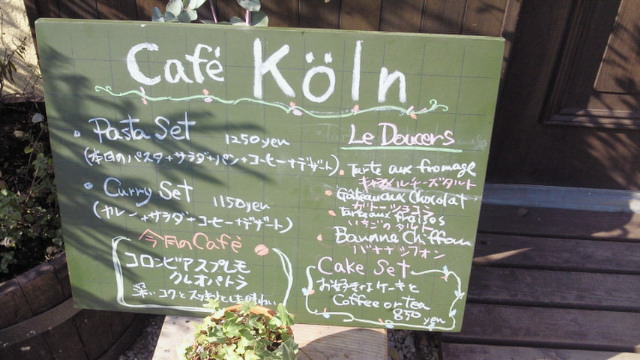 Café Köln
Pasta Set 1250yen
(本日のパスタ+サラダ+パン+コーヒー+デザート)
Curry Set 1150yen
(カレー+サラダ+コーヒー+デザート)
今月のCafé
コロンビアスプレモ
クレオパトラ
深いコクとスッキリとした味わい
Le Doucers
Tarte aux fromage
キャラメルチーズタルト
Gateaux Chocolat
ガトーショコラ
Tarte aux fraises
いちごのタルト
Banane Chiffon
バナナシフォン
Cake Set
お好きなケーキと
Coffee or tea
850 yen